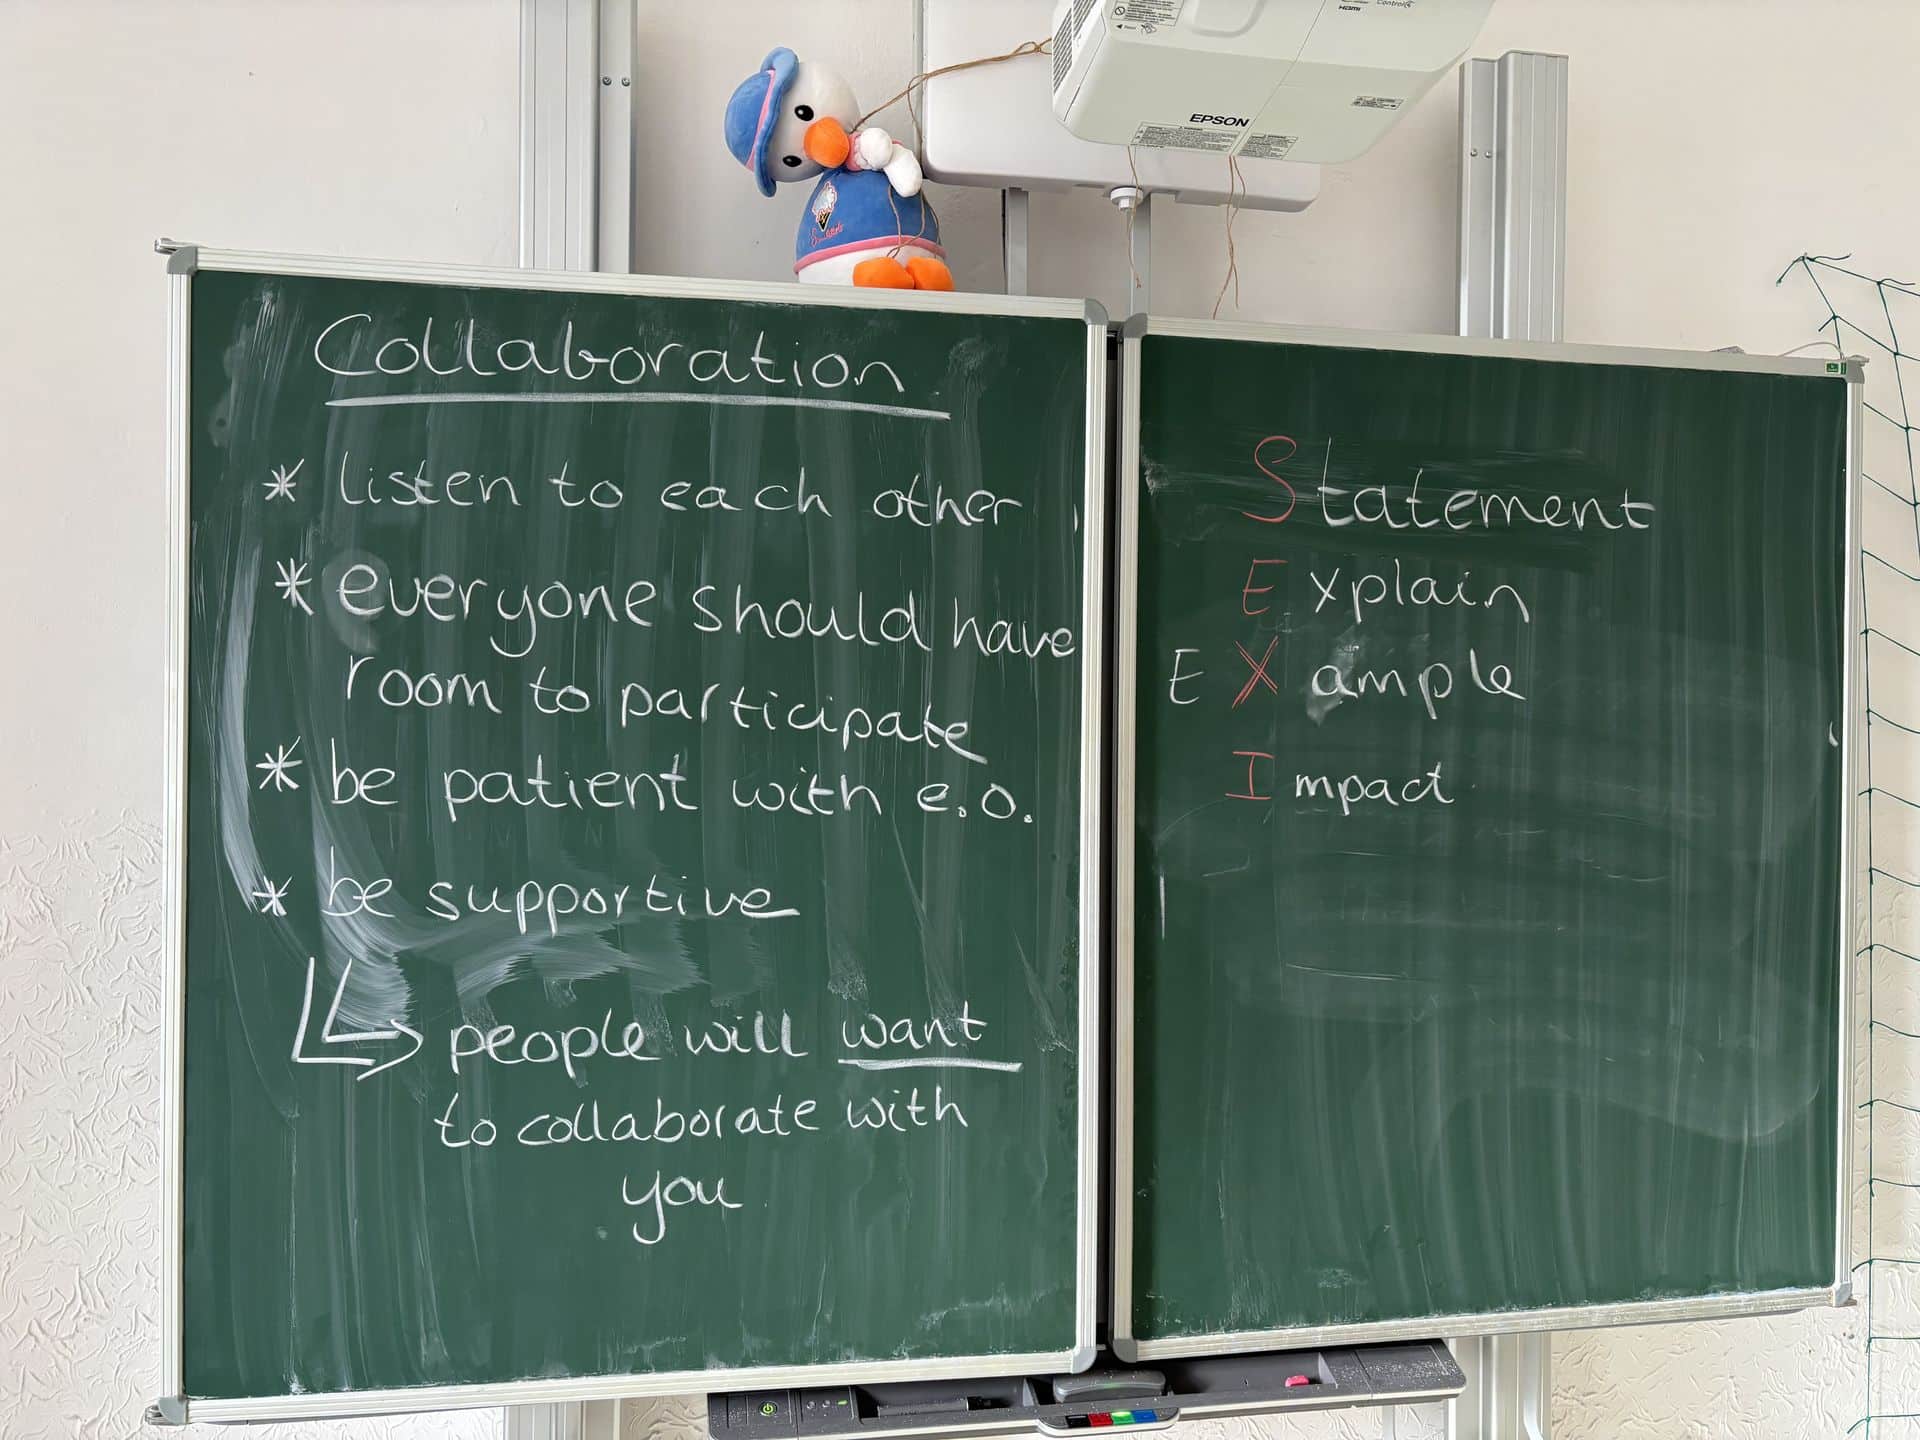 HDMI
EPSON
Collaboration
* listen to each other
* everyone should have
room to participate
* be patient with e.o.
* be supportive
people will want
to collaborate with
you
Statement
Explain
EXample
Impact